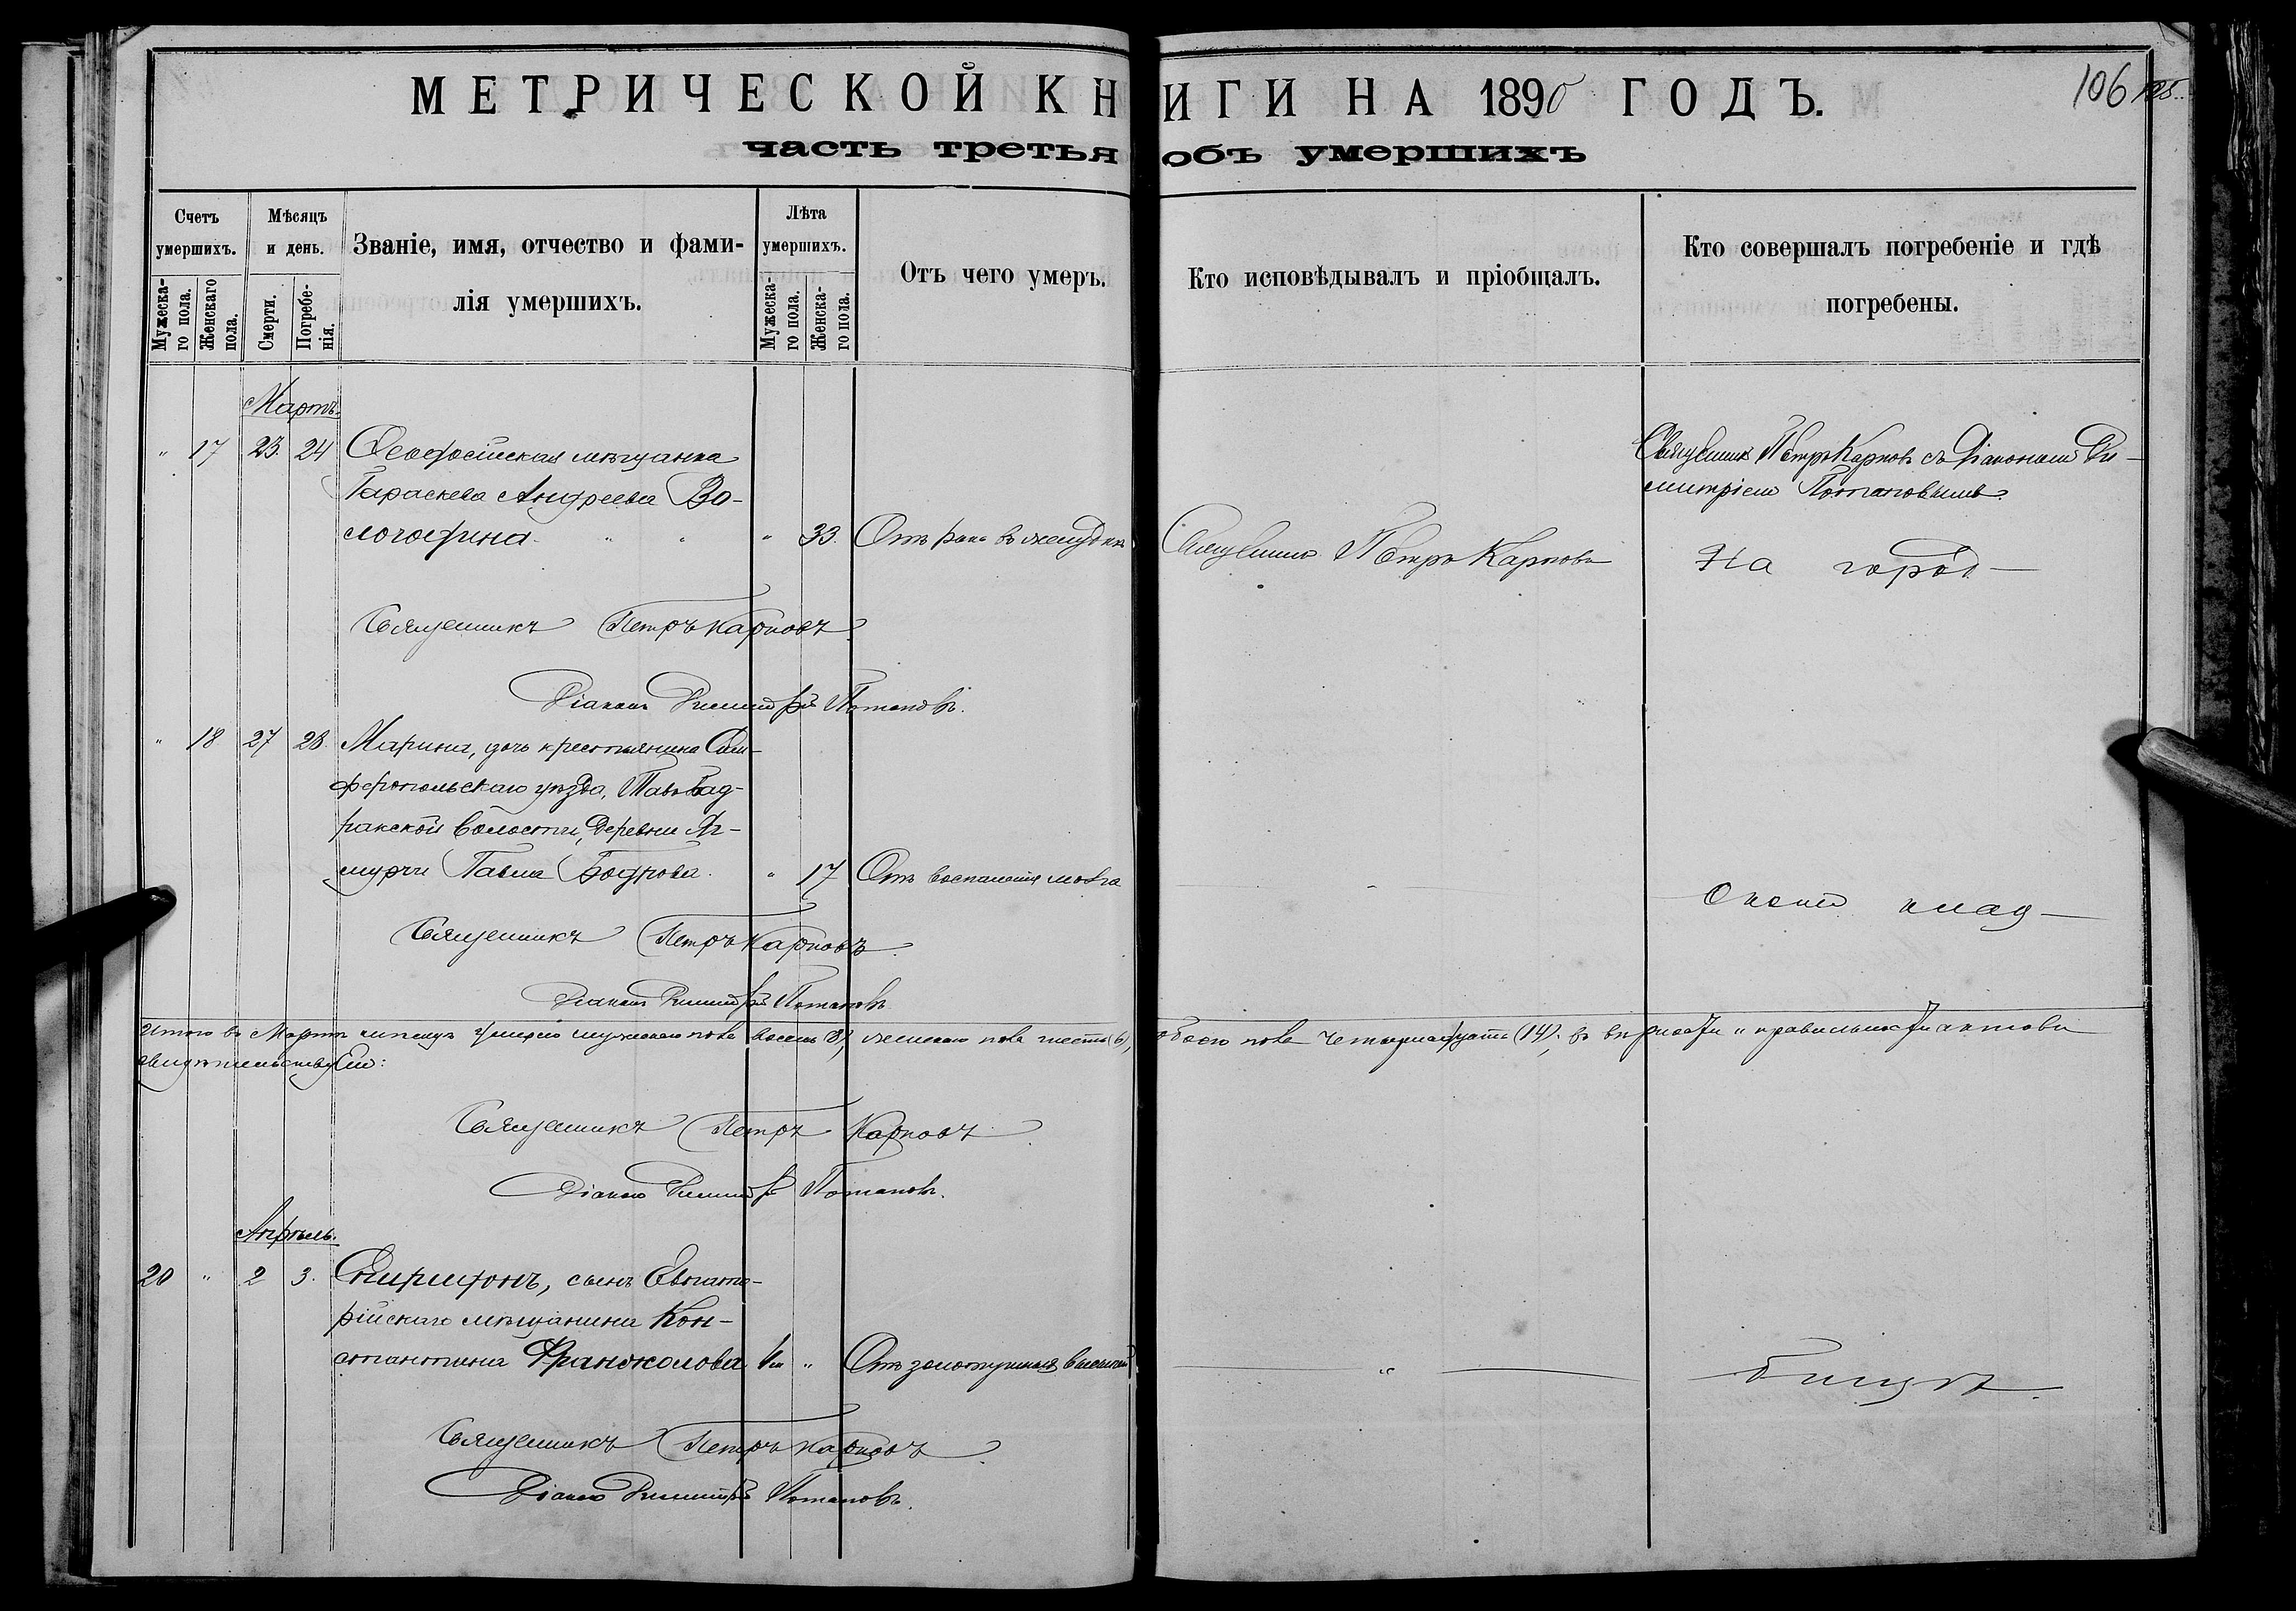 МЕТРИЧЕСКОЙ КНИГИ НА 1890 ГОДЪ.
106
часть третья объ умершихъ
Счетъ умершихъ.
Мужеска-го пола.
Женскаго пола.
Мѣсяцъ и день.
Смерти.
Погребе-нія.
Званіе, имя, отчество и фами-
лія умершихъ.
Лѣта умершихъ.
Мужеска-го пола.
Женска-го пола.
Отъ чего умеръ.
Кто исповѣдывалъ и пріобщалъ.
Кто совершалъ погребеніе и гдѣ
погребены.
Мартъ.
" 17 23. 24 Ѳеодосійская мѣщанка
Параскева Андреева Во-
логодина. " " " 33. Отъ рака въ желудкѣ
Священникъ Петръ Карповъ
Священникъ Петръ Карповъ съ Діакономъ Ди-
митріемъ Потаповымъ.
На город-
Священникъ Петръ Карповъ
Діаконъ Димитрій Потаповъ.
" 18 27 28. Марина, дочь крестьянина Сим-
феропольскаго уѣзда, Тав-Бад-
ракской волости, деревни Аг-
мурчи Павла Бодрова. " 17 Отъ воспаленія мозга
" Скомъ клад-
Священникъ Петръ Карповъ.
Діаконъ Димитрій Потаповъ
Итого въ Мартѣ мѣсяцѣ умерло мужескаго пола восемь (8), женскаго пола шесть (6), обоего пола четырнадцать (14); въ вѣрности и правильности актовъ
свидѣтельствуемъ:
Священникъ Петръ Карповъ.
Діаконъ Димитрій Потаповъ.
Апрѣль.
20 " 2 3. Спиридонъ, сынъ Евпато-
рійскаго мѣщанина Кон-
стантина Франжолова "
Отъ золотушныхъ
" бищѣ.
Священникъ Петръ Карповъ.
Діаконъ Димитрій Потаповъ.